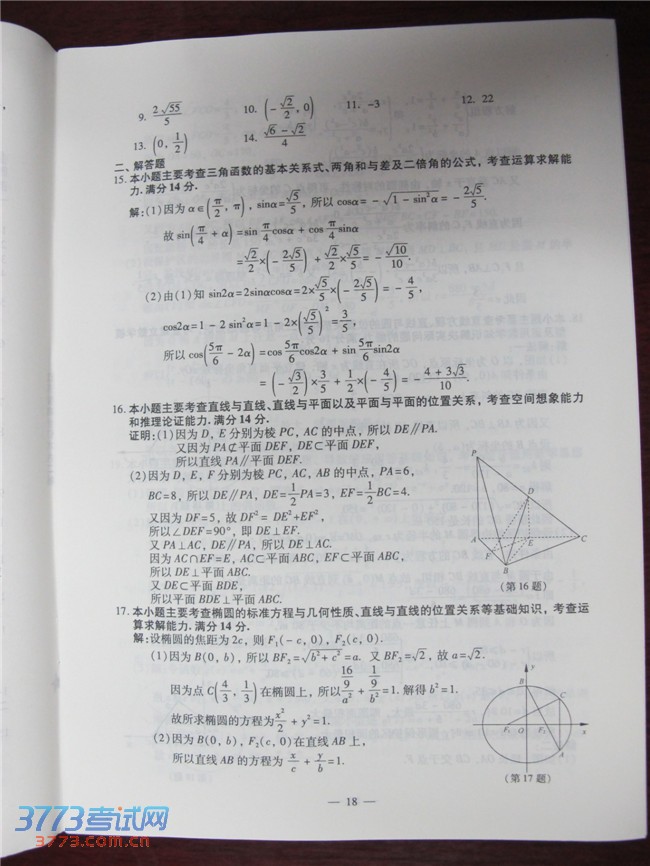 9. 2√55/5 10. (-√2/2, 0) 11. -3 12. 22
13. (0, 1/2) 14. (√6-√2)/4
二、解答题
15. 本小题主要考查三角函数的基本关系式、两角和与差及二倍角的公式，考查运算求解能
力. 满分 14 分.
解: (1) 因为 α∈(π/2, π), sinα=√5/5, 所以 cosα= -√(1-sin²α) = -2√5/5.
故 sin(π/4 + α) =sin π/4 cosα + cos π/4 sinα
=√2/2×(-2√5/5) +√2/2×√5/5= -√10/10.
(2) 由(1)知 sin2α=2sinαcosα=2×√5/5×(-2√5/5) = -4/5,
cos2α=1-2 sin²α=1-2×(√5/5)²=3/5,
所以 cos(5π/6 - 2α) =cos 5π/6 cos2α + sin 5π/6 sin2α
= (-√3/2)×3/5+1/2×(-4/5) = -(4+3√3)/10.
16. 本小题主要考查直线与直线、直线与平面以及平面与平面的位置关系，考查空间想象能力
和推理论证能力. 满分 14 分.
证明: (1) 因为 D, E 分别为棱 PC, AC 的中点, 所以 DE∥PA.
又因为 PA⊄平面 DEF, DE⊂平面 DEF,
所以直线 PA∥平面 DEF.
(2) 因为 D, E, F 分别为棱 PC, AC, AB 的中点, PA=6,
BC=8, 所以 DE∥PA, DE=1/2PA=3, EF=1/2BC=4.
又因为 DF=5, 故 DF²= DE²+EF²,
所以∠DEF=90°, 即 DE⊥EF.
又 PA⊥AC, DE∥PA, 所以 DE⊥AC.
因为 AC∩EF=E, AC⊂平面 ABC, EF⊂平面 ABC,
所以 DE⊥平面 ABC.
又 DE⊂平面 BDE,
所以平面 BDE⊥平面 ABC.
P
D
A
E
C
F
B
(第 16 题)
17. 本小题主要考查椭圆的标准方程与几何性质、直线与直线的位置关系等基础知识，考查运
算求解能力. 满分 14 分.
解: 设椭圆的焦距为 2c, 则 F₁(-c, 0), F₂(c, 0).
(1) 因为 B(0, b), 所以 BF₂=√(b²+c²)=a. 又 BF₂=√2, 故 a=√2.
因为点 C(4/3, 1/3)在椭圆上, 所以(16/9)/a² + (1/9)/b²=1. 解得 b²=1.
故所求椭圆的方程为x²/2 + y²=1.
(2) 因为 B(0, b), F₂(c, 0)在直线 AB 上,
所以直线 AB 的方程为 x/c + y/b=1.
y
B
C
F₁ O F₂ x
A
(第 17 题)
— 18 —
3773考试网
3773.com.cn